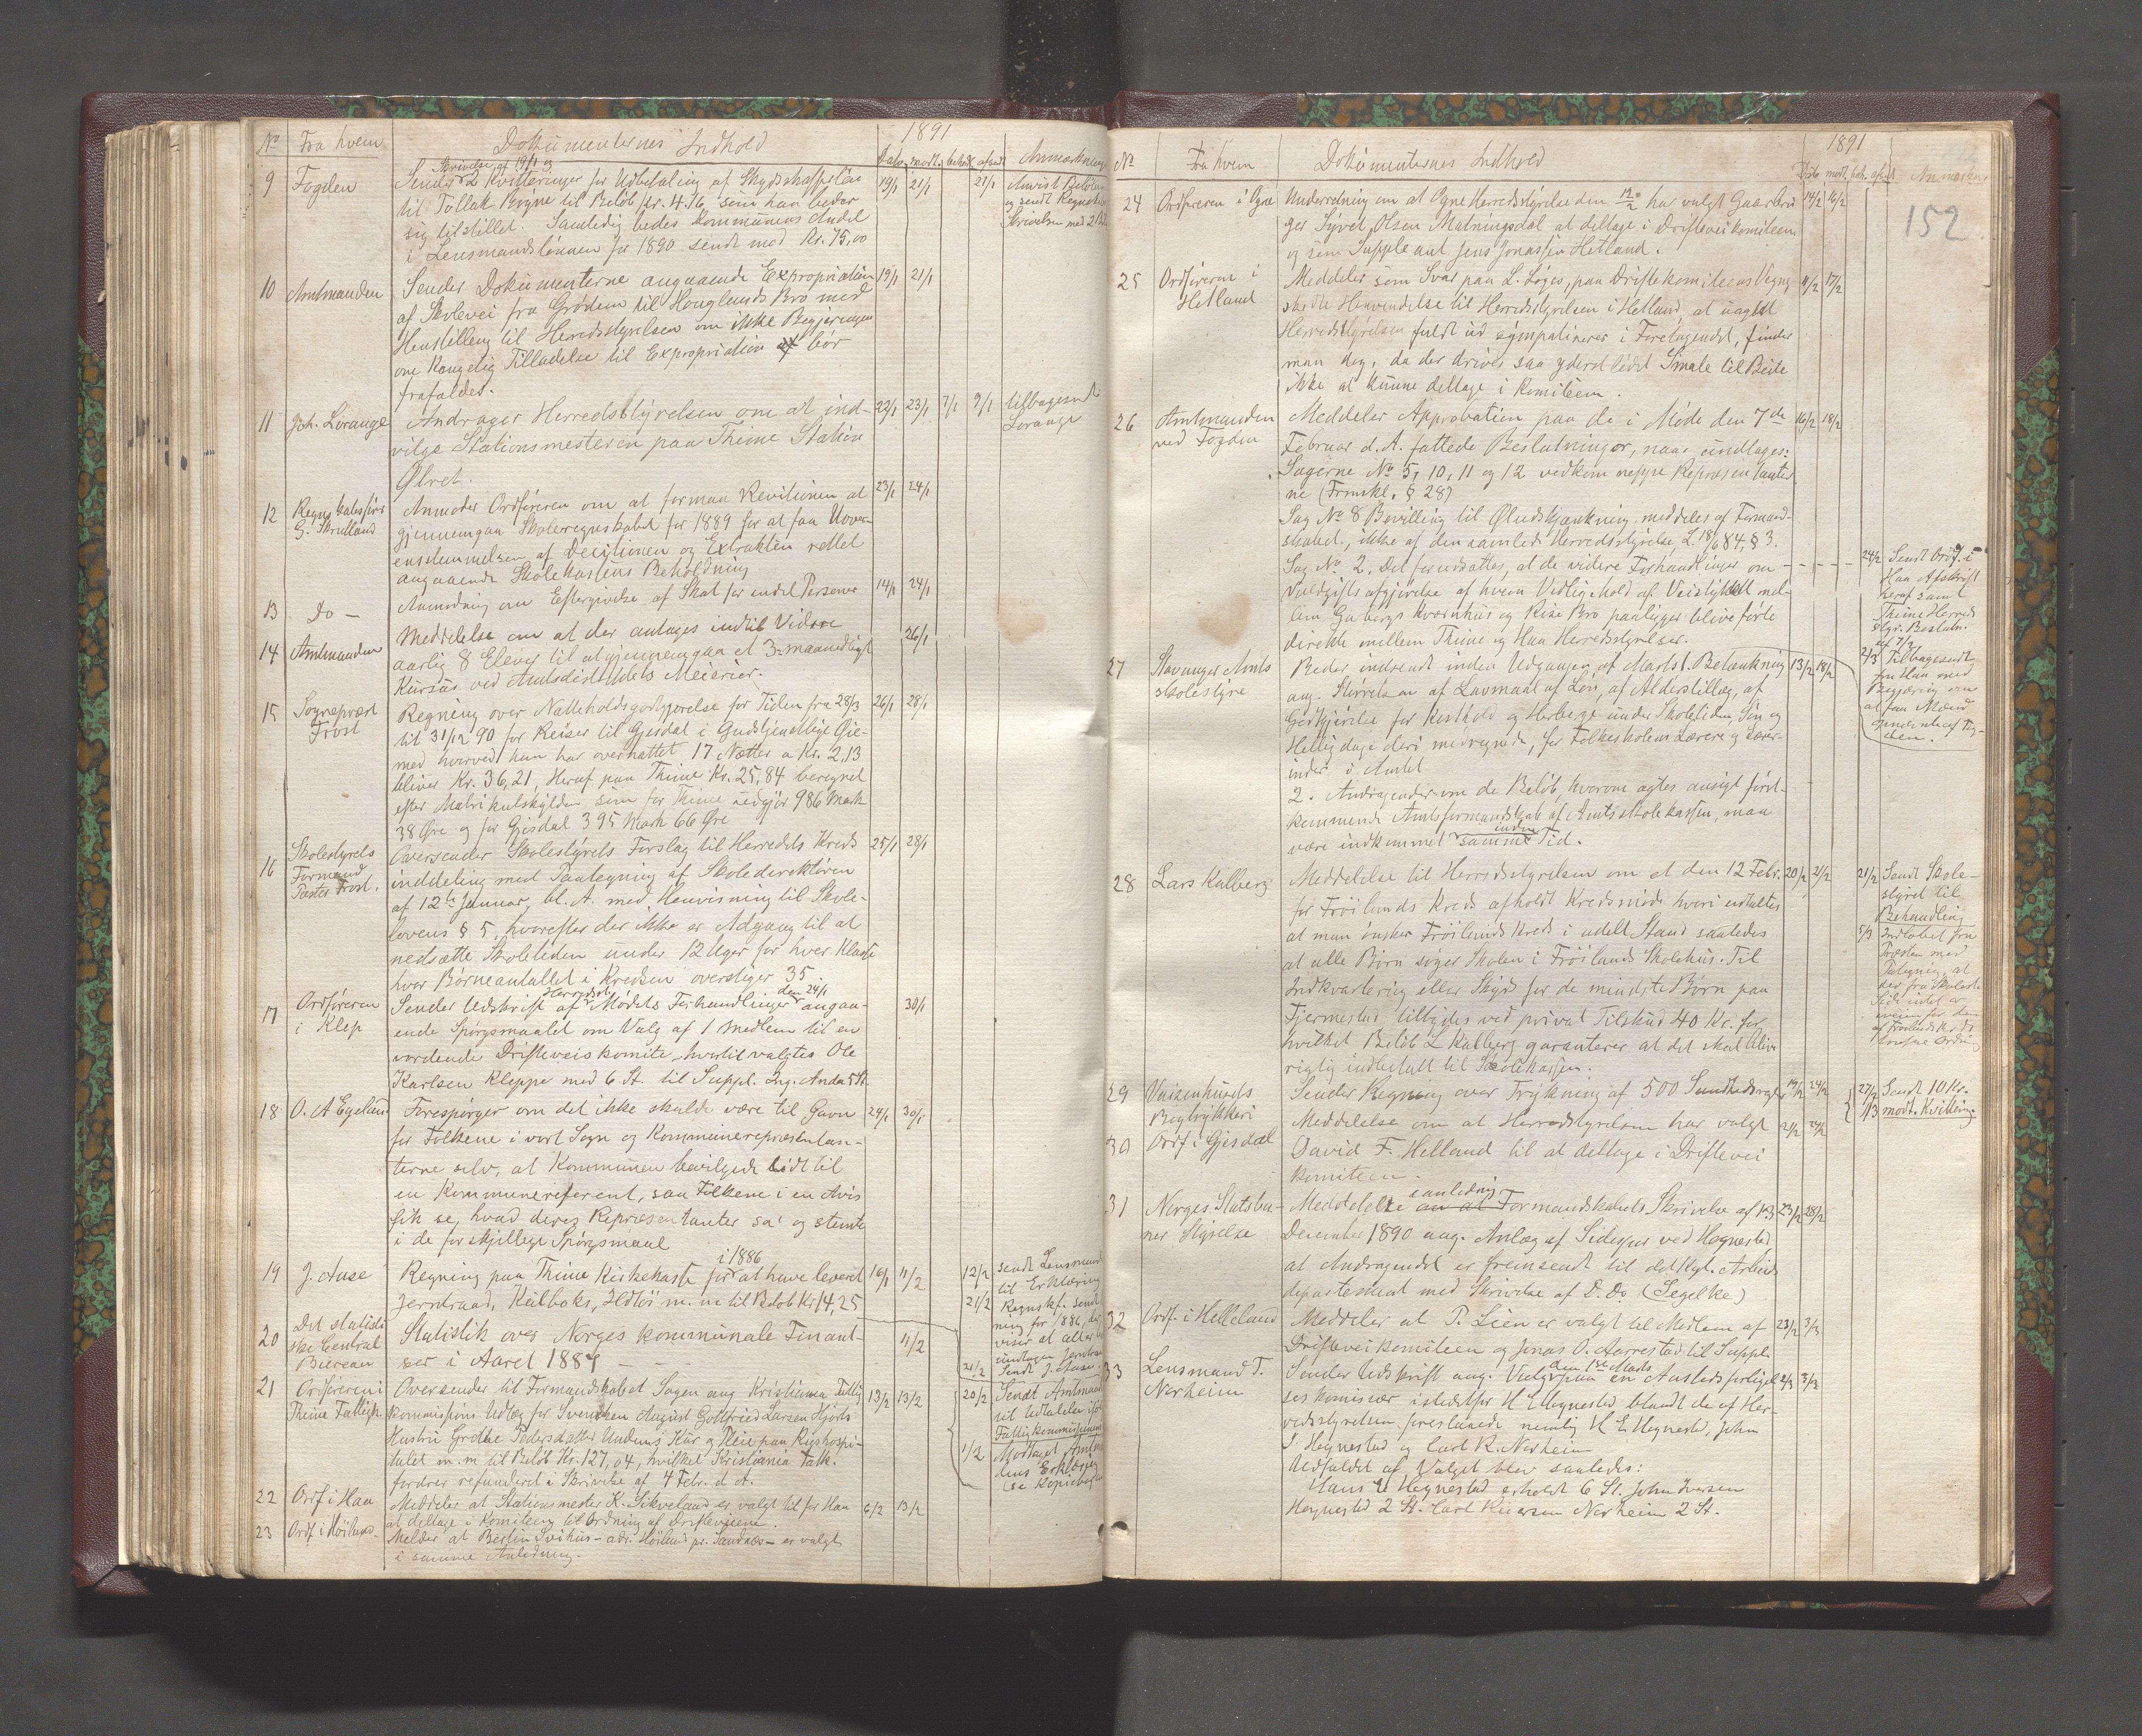 1891
No Fra hvem Dokumenternes Indhold Dato modt. behdl. afsedt Anmærkning
9 Fogden Skrivelse af 19/1 og
Sender 2 Kvitteringer for Udbetaling af Skydsskafferløn 19/1 21/1 21/1 Anvist Beløbet
til Tollak Bryne til Beløb Kr. 4.16 som han beder og sendt
sig tilstillet. Samtidig bedes Kommunens Andel Skrivelsen med 2
i Lensmandslønnen for 1890 sendt med Kr. 75,00
10 Amtmanden Sender Dokumenterne angaaende Expropriation 19/1 21/1
af Skolevei fra Grødem til Hauglands Bro med
Henstilling til Herredsstyrelsen om ikke Begjæringen
om Kongelig Tilladelse til Expropriation bør
frafaldes.
11 Joh. Lorange Andrager Herredsstyrelsen om at ind- 22/1 23/1 7/1 9/1 tilbagesendt
vilge Stationsmesteren paa Thime Station Lorange
Ølret.
12 Regnskabsfører Anmoder Ordføreren om at formaa Revisionen at 23/1 24/1
G. Skrulland gjennemgaa Skoleregnskabet for 1889 for at faa Uover-
ensstemmelsen af Decisionen og Extrakten rettet
angaaende Skolekassens Beholdning
13 Do — Anmodning om Eftergivelse af Skat for endel Personer 14/1 24/1
14 Amtmanden Meddelelse om at der antages indtil Videre 26/1
aarlig 8 Elever til at gjennemgaa et 3-maanedligt
Kursus ved Amtsdistriktets Meierier.
15 Sognepræst Regning over Natteholdsgodtgjørelse for Tiden fra 28/3 26/1 28/1
Frost til 31/12 90 for Reiser til Gjesdal i Gudstjenstlige Øie-
med hvorved han har overnattet 17 Nætter a Kr. 2,13
bliver Kr. 36,21, Heraf paa Thime Kr. 25,84 beregnet
efter Matrikulskylden som for Thime udgjør 986 Mark
38 Øre og for Gjesdal 395 Mark 66 Øre
16 Skolestyrets Oversender Skolestyrets Forslag til Herredets Kreds 25/1 28/1
Formand inddeling med Paategning af Skoledirektøren
Pastor Frost. af 12te Januar d. A. med Henvisning til Skole-
lovens § 5, hvorefter der ikke er Adgang til at
nedsætte Skoletiden under 12 Uger for hver Klasse
hvor Børneantallet i Kredsen overstiger 35.
17 Ordføreren Sender Udskrift af Herredsst. Mødets Forhandlinger den 24/1 angaa- 30/1
i Klep ende Spørgsmaalet om Valg af 1 Medlem til en
vordende Drifteveiskomite, hvortil valgtes Ole
Karlsen Kleppe med 6 St. til Suppl. Ing. Anda 5 St.
18 O. A Egeland Forespørger om det ikke skulde være til Gavn 24/1 30/1
for Folkene i vort Sogn og Kommunerepræsentan-
terne selv, at Kommunen bevilgede lidt til
en Kommunereferent, saa Folkene i en Avis
fik se, hvad deres Repræsentanter sa' og stemte
i de forskjellige Spørgsmaal
19 J. Aase Regning paa Thime Kirkekasse for i 1886 at have leveret 16/1 11/2 12/2 sendt Lensmand
Jerntraad, Kulboks, Ildtøi m. m til Beløb Kr. 14,25 til Erklæring
20 Det statisti Statistik over Norges kommunale Finant- 11/2 21/2 Regnskf. sendt
ske Central ser i Aaret 1887 — — ning for 1886, der
Bureau viser at alt er
21/2 Sendt J. Aase.
21 Ordføreren i Oversender til Formandskabet Sagen ang Kristiania Fattig 13/2 13/2 20/2 Sendt Amtmand
Thime Fattigk. kommissions Udlæg for Svensken August Gottfried Larsen Hjorts til Udtalelse
Hustru Grethe Pedersdatter Undems Kur og Pleie paa Rigshospi- Fattigkommissionen
talet m. m til Beløb Kr. 127,04, hvilket Kristiania Fatk. 1/2 Modtaget Amtman
fordrer refunderet i Skrivelse af 4 Febr. d. A. dens Erklæring
22 Ordf i Haa Meddeler at Stationsmester K. Sikveland er valgt til for Haa 6/2 13/2 (se Kopibog
at deltage i Komiteen til Ordning af Drifteveiene.
23 Ordf i Høiland Melder at Bertin Svihus – adr. Høiland pr. Sandnæs – er valgt
i samme Anledning.
1891
No Fra hvem Dokumenternes Indhold Dato modt. beh. afsedt Anmærkn
152
24 Ordføreren i Ogne Underretning om at Ogne Herredsstyrelse den 12/2 har valgt Gaardbru 14/2 16/2
ger Sivert Olsen Matningsdal at deltage i Drifteveikomiteen
og som Suppleant Jens Jonassen Hetland.
25 Ordføreren i Meddeler som Svar paa L. Løges, paa Driftekomiteens Vegne 11/2 17/2
Hetland skede Henvendelse til Herredsstyrelsen i Hetland, at uagtet
Herredsstyrelsen fuldt ud sympatiserer i Foretagendet, finder
man dog, da der drives saa yderst lidet Smale til Beite
ikke at kunne deltage i Komiteen.
26 Amtmanden Meddeler Approbation paa de i Møde den 7de 16/2 18/2
ved Fogden Februar d. A. fattede Beslutninger, naar undtages:
Sagerne No 5, 10, 11 og 12 vedkom neppe Repræsentanter
ne (Frmskl. § 28)
Sag No 8 Bevilling til Øludskjænkning meddeles af Formand-
skabet, ikke af den samlede Herredsstyrelse L. 18/6 84, § 3.
Sag No 2. Det forudsættes, at de videre Forhandlinger om - - - - 24/2 Sendt Ordf. i
Voldgiftsafgjørelse af hvem Vedligehold af Veistykket mel- Haa Afskrift
lem Gabergs Kværnhus og Rise Bro paaligger blive førte heraf samt
direkte mellem Thime og Haa Herredsstyrelser. Thime Herreds
Styr. Beslutn.
af 7/2
27 Stavanger Amts Beder indsendt inden Udgangen af Marts 1. Betænkning 13/2 18/2 2/3 Tilbagesendt
skolestyre ang. Størrelsen af Lavmaal af Løn, af Alderstillæg, af fra Haa med
Godtgjørelse for Kosthold og Herberge under Skoletiden, Søn og Begjæring om
Helligdage deri medregnede, for Folkeskolens Lærere og Lærer- at faa Mænd
inder i Amtet
2. Andragender om de Beløb, hvorom agtes ansøgt først-
kommende Amtsformandskab af Amtsskolekassen, maa
være indkommet inden samme Tid.
28 Lars Kalberg Meddelelse til Herredsstyrelsen om at den 12 Febr. 20/2 21/2 21/2 Sendt Skole-
for Frøilands Kreds afholdt Kredsmøde hvori udtaltes styret til
at man ønsker Frøilands Kreds i udelt Stand saaledes Behandling
at alle Børn søger Skolen i Frøilands Skolehus. Til 5/3 Indløbet fra
Indkvartering eller Skyds for de mindste Børn paa Præsten med
Fjermestad tilbydes ved privat Tilskud 40 Kr. for Paategning at
hvilket Beløb L Kalberg garanterer at det skal blive
rigtig indbetalt til Skolekassen.
29 Vaisenhusets Sender Regning over Trykning af 500 Sundhedsregler 19/2 24/2 27/2 Sendt 10 Kr.
Bogtrykkeri 1/3 modt. Kvittering.
30 Ordf i Gjesdal Meddelelse om at Herredsstyrelsen har valgt 21/2 24/2
David F. Helland til at deltage i Driftevei
komiteen.
31 Norges Statsba- Meddelelse om at anledning Formandskabets Skrivelse af 13 23/2 28/2
ner Styrelse December 1890 ang. Anlæg af Sidespor ved Hognestad
at Andragendet er fremsendt til det Kgl. Arbeids
departement med Skrivelse af D. Do (Segelke)
32 Ordf. i Helleland Meddeler at P. Lien er valgt til Medlem af 23/2 3/3
Drifteveikomiteen og Jonas O. Aarrestad til Suppl.
33 Lensmand T. Sender Udskrift ang. Valg den 1ste Marts paa en Anstedsforligel 2/3 3/3
Norheim seskomisær istedetfor H E Hognestad blandt de af Her-
redsstyrelsen foreslaaede nemlig H E Hognestad, John
I Hognestad og Carl R. Norheim
Udfaldet af Valget blev saaledes:
Hans E Hognestad erholdt 6 St. John Iversen
Hognestad 2 St. Carl Reiersen Norheim 2 St.